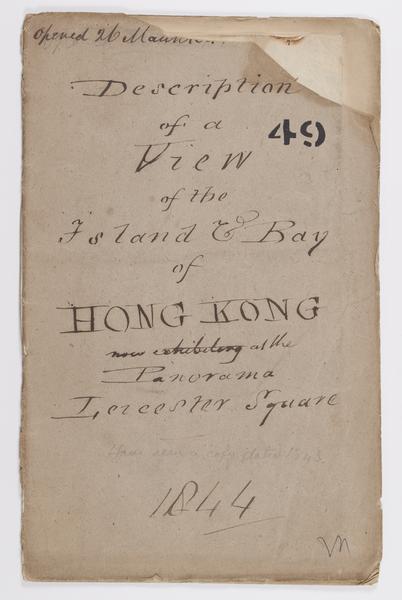 Opened 26
Description
of a
49
View
of the
Island & Bay
of
HONG KONG
now exhibiting at the
Panorama
Leicester Square
Have seen a copy dated 1843
1844